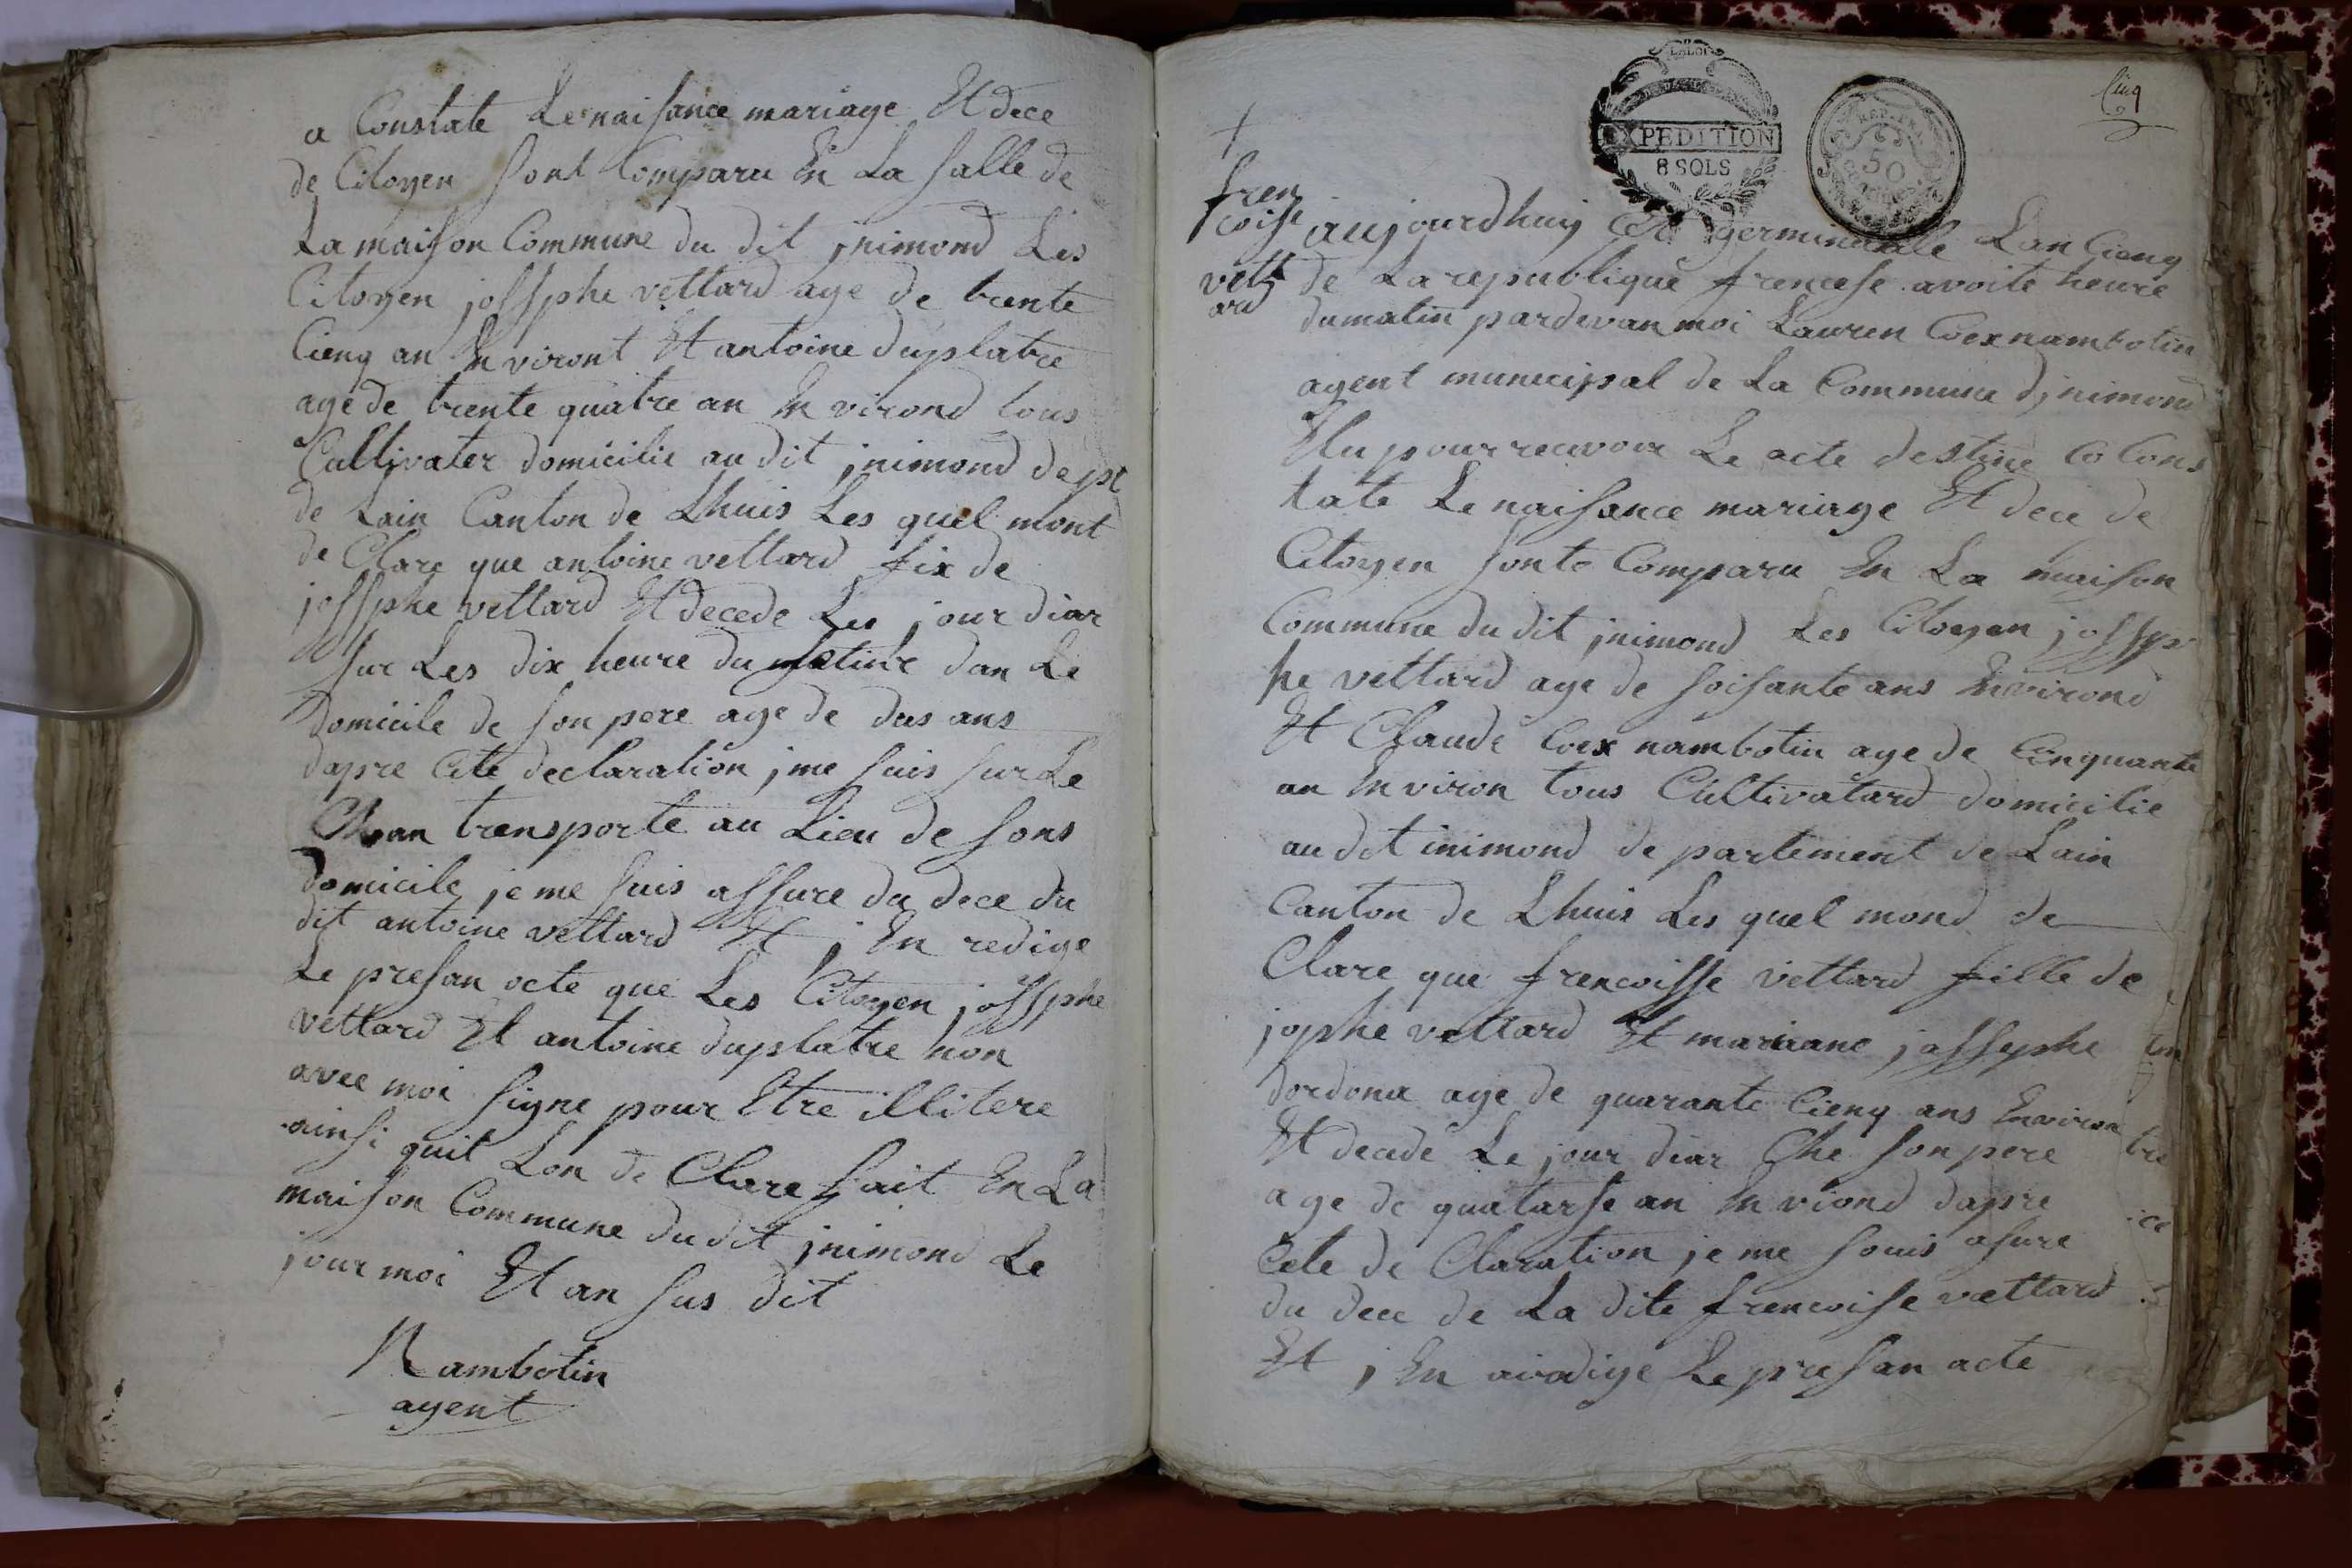 a Constate Le naisance mariage Et dece
de Citoyen sont Comparu En La salle de
La maison Commune du dit jnimond Les
Citoyen jossphe vettard age de trente
Cienq an En viront Et antoine duplatre
age de trente quatre an En virond tous
Cultivater domicilie au dit jnimond dept
de Lain Canton de Lhuis Les quel mont
de Clare que antoine vettard fix de
jossphe vettard Et decede Les jour diar
sur Les dix heure du matine dan Le
domicile de son pere age de dus ans
dapre Cete declaration j me suis sur Le
Chan transporte au Lieu de sons
domicile je me suis assure du dece du
dit antoine vettard Et j En redige
Le presan acte que Les Citoyen jossphe
vettard Et antoine duplatre non
avec moi signe pour Etre illitere
ainsi quil Lon de Clare fait En La
maison Commune du dit jnimond Le
jour moi Et an sus dit
Nambotin
agent
Cinq
LALOI
EXPEDITION
8 SOLS
REP. FRA.
50
+
fren
coise
vett
ard
aujourdhuij germinalle Lan Cienq
de La republique frencese avoite heure
du matin pardevan moi Lauren Coex nambotin
agent municipal de La Commune djnimond
Elu pour recevoir Le acte destine Co Cons
tate Le naisance mariage Et dece de
Citoyen sonte Comparu En La maison
Commune du dit jnimond Les Citoyen jossp
he vettard age de soisante ans Environd
Et Claude Coex nambotin age de Cinquante
an En viron tous Cultivatard domicilie
au dit inimond de partement de Lain
Canton de Lhuis Les quel mond de
Clare que frencoisse vettard fille de
jophe vettard Et mariane jossephe
dordona age de quarante Cienq ans Environ
Et decede Le jour diar Che son pere
age de quatarse an En viond dapre
Cete de Claration je me souis asure
du dece de La dite frencoise vettard
Et j En airadige Le presan acte